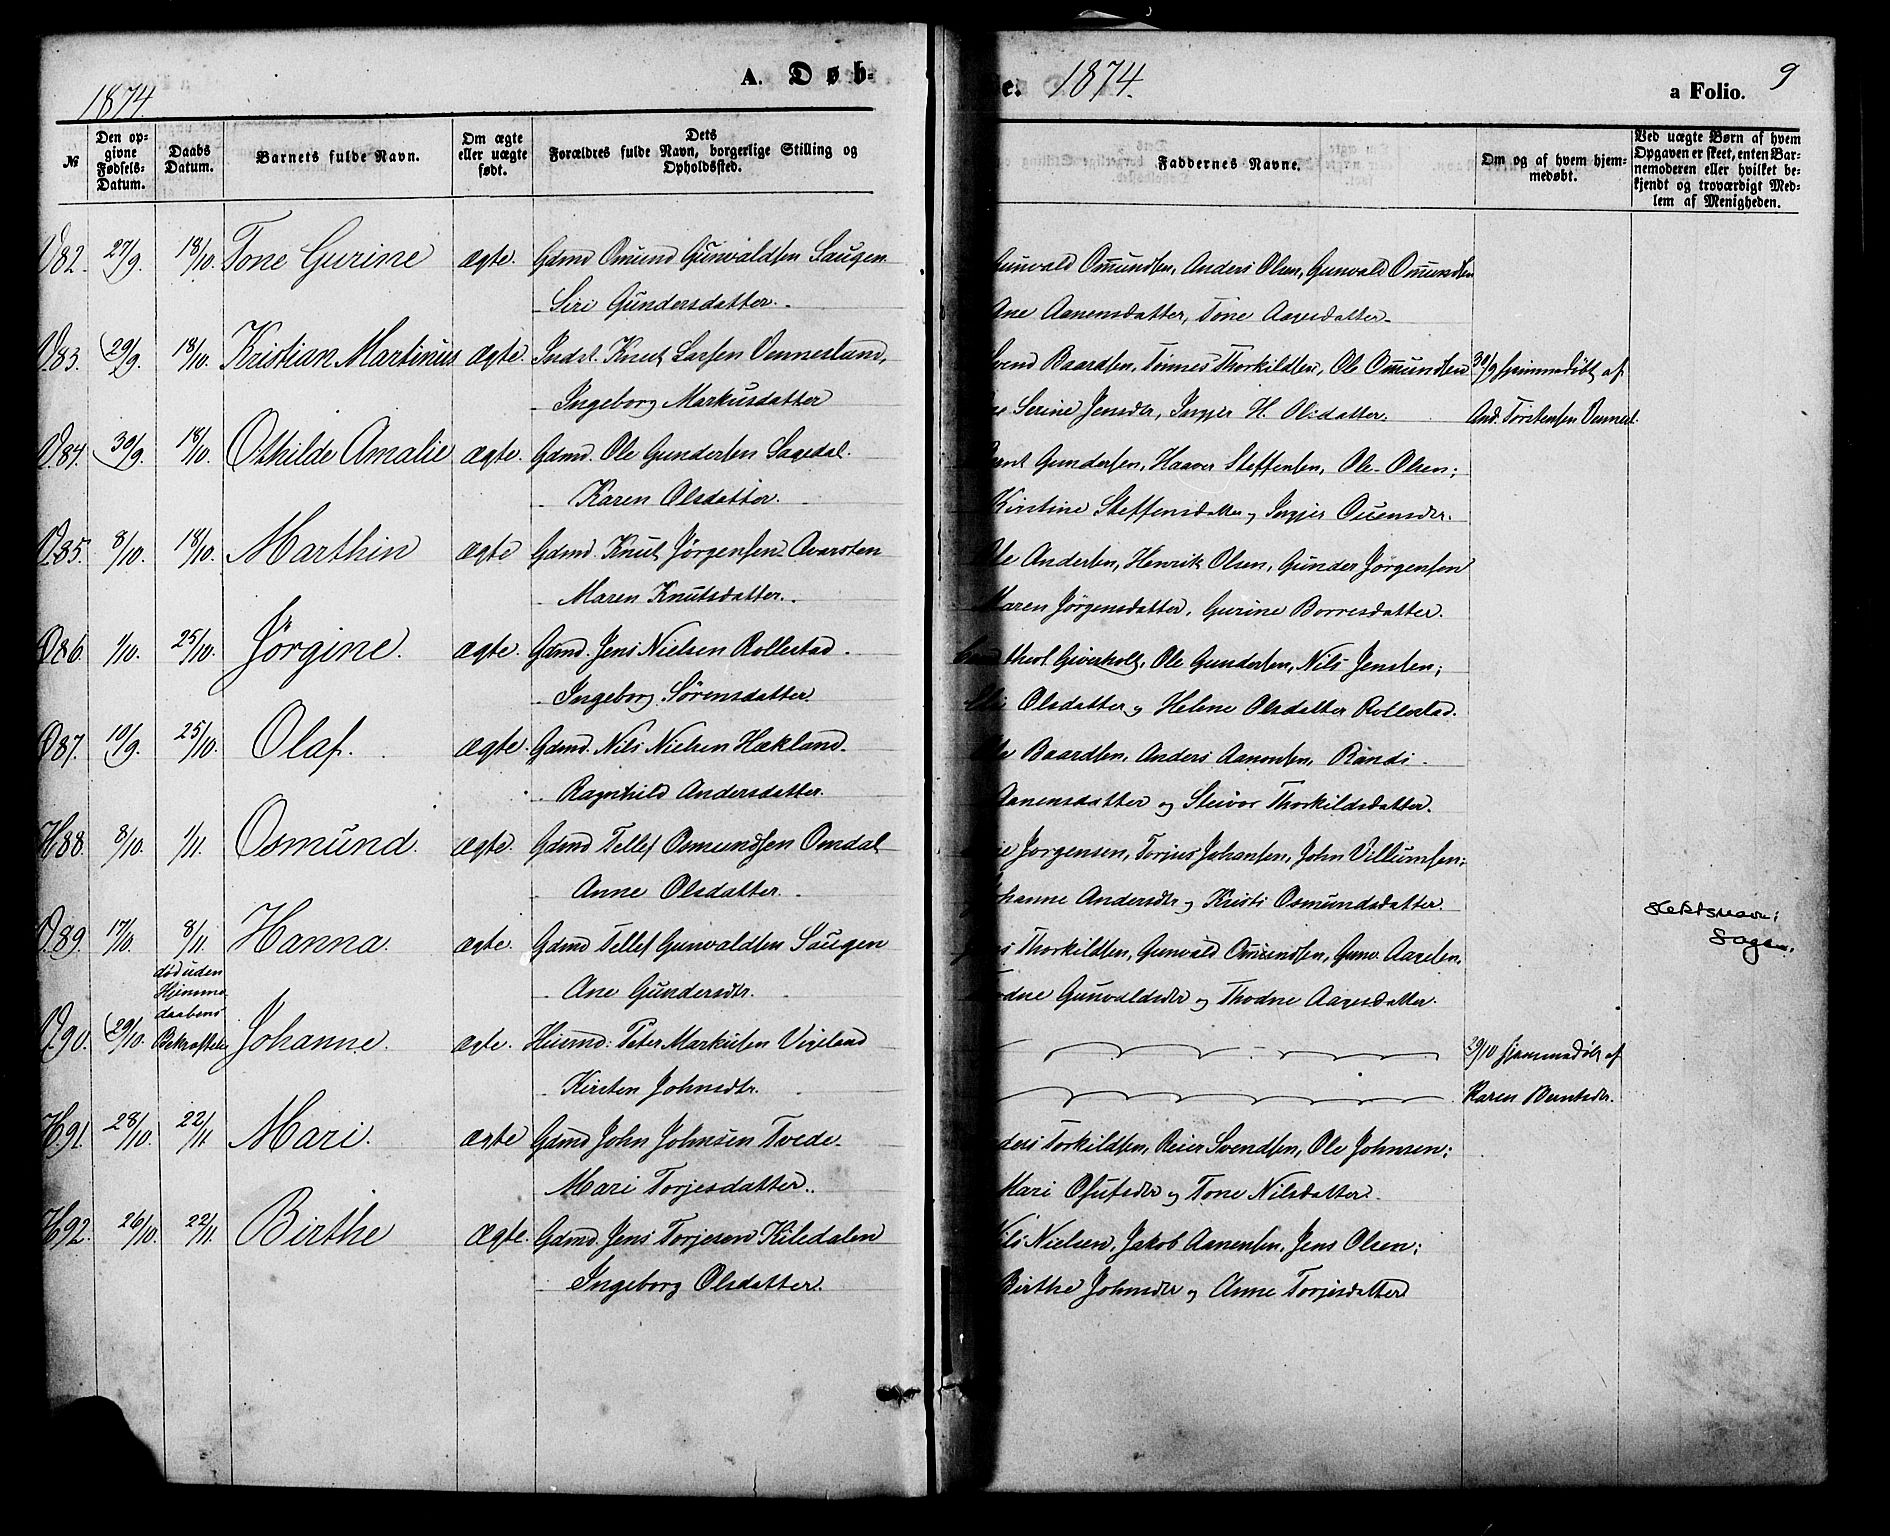 1874. A. Døb-
№ Den opgivne Fødsels-Datum. Daabs Datum. Barnets fulde Navn. Om ægte eller uægte født. Dets Forældres fulde Navn, borgerlige Stilling og Opholdssted.
V82. 27/9. 18/10. Tone Gurine ægte. Gdmd Omund Gunvaldsen Saugen
Siri Gundersdatter.
V83. 29/9. 18/10. Kristian Martinus ægte. Indst. Knut Larsen Vennesland,
Ingeborg Markusdatter
V84. 30/9. 18/10. Othilde Amalie ægte. Gdmd. Ole Gundersen Sagedal.
Karen Olsdatter.
V85. 8/10. 18/10. Marthin ægte Gdmd. Knut Jørgensen Avarsten
Maren Knutsdatter.
86. 1/10. 25/10. Jørgine. ægte. Gdmd. Jens Nielsen Rollestad.
Ingeborg Sørensdatter.
87. 10/9. 25/10. Olaf. ægte. Gdmd. Nils Nielsen Hækland.
Ragnhild Andersdatter.
H88. 8/10. 1/11. Osmund. ægte. Gdmd Tellef Osmundsen Omdal
Anne Olsdatter.
V89. 17/10. 8/11. Hanna. ægte. Gdmd Tellef Gunvaldsen Saugen
død uden Hjemmedaabens Bekræftelse
Ane Gundersdtr.
V90. 29/10. Johanne. ægte. Huusmd: Peter Markusen Vigeland
Kirsten Johnsdtr.
H91. 28/10. 22/11 Mari. ægte Gdmd John Johnsen Tvede.
Mari Torjesdatter.
H92. 26/10. 22/11. Birthe ægte. Gdmd. Jens Torjesen Kiledalen
Ingeborg Olsdatter.
e. 1874. a Folio. 9
Faddernes Navne. Om og af hvem hjemmedøbt. Ved uægte Børn af hvem Opgaven er skeet, enten Barnemoderen eller hvilket bekjendt og troværdigt Medlem af Menigheden.
Gunvald Omundsen, Anders Olsen, Gunvald Omundsen
Ane Aanensdatter, Tone Aagesdatter.
Svend Baardsen, Tønnes Thorkildsen, Ole Omundsen 30/9 hjemmedøbt af
Serine Jensdtr, Inger H. Olsdatter. And. Torstensen Vennesl.
Gundersen, Haaver Steffensen, Ole Olsen;
Kirstine Steffensdatter og Inger Ouensdtr.
Ole Andersen, Henrik Olsen, Gunder Jørgensen
Maren Jørgensdatter, Gurine Borresdatter.
theol. Giverholt, Ole Gundersen, Nils Jensen;
Olsdatter og Helene Olsdatter Rollestad.
Ole Baardsen, Anders Aanonsen, Randi
Aanensdatter og Steivor Thorkildsdatter.
Jørgensen, Torjus Johansen, John Villumsen;
Johanne Andersdtr og Kristi Osmundsdatter.
Slektsnavn:
Sagen.
Thorkildsen, Gunvald Omundsen, Gunv. Aagesen.
Thodne Gunvaldsdtr og Thodne Aagesdatter.
29/10 hjemmedøbt af
Karen Berntsdtr.
Torkildsen, Reier Svendsen, Ole Johnsen;
Mari Osufsdtr og Tone Nilsdatter.
Nils Nielsen, Jakob Aanensen, Jens Olsen;
Birthe Johnsdtr og Anne Torjesdatter